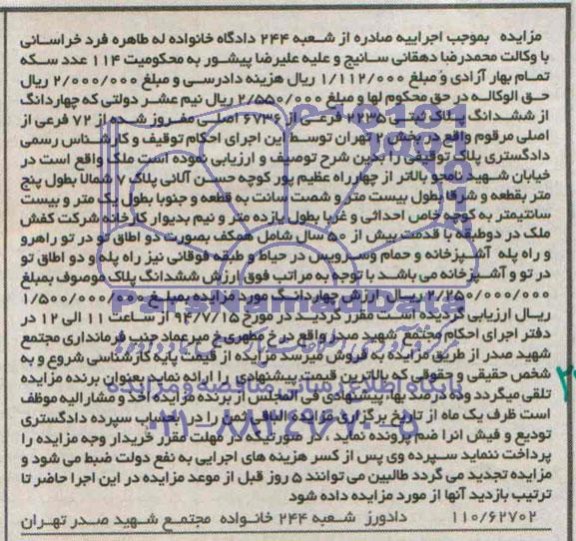 مزایده بموجب اجراییه صادره از شعبه ۲۴۴ دادگاه خانواده له طاهره فرد خراسانی
با وکالت محمدرضا دهقانی سانیج و علیه علیرضا پیشور به محکومیت ۱۱۴ عدد سکه
تمام بهار آزادی و مبلغ ۱/۱۱۲/۰۰۰ ریال هزینه دادرسی و مبلغ ۲/۰۰۰/۰۰۰ ریال
حق الوکاله در حق محکوم لها و مبلغ ۲/۵۵۰/۰۰۰ ریال نیم عشر دولتی که چهاردانگ
از ششدانگ پلاک ثبتی ۲۲۳۵ فرعی از ۶۷۳۶ اصلی مفروز شده از ۷۲ فرعی از
اصلی مرقوم واقع در بخش ۲ تهران توسط این اجرای احکام توقیف و کارشناس رسمی
دادگستری پلاک توقیفی را بدین شرح توصیف و ارزیابی نموده است ملک واقع است در
خیابان شهید نامجو بالاتر از چهارراه عظیم پور کوچه حسن آلانی پلاک ۷ شمالا بطول پنج
متر بقطعه و شرقا بطول بیست متر و شصت سانت به قطعه و جنوبا بطول یک متر و بیست
سانتیمتر به کوچه خاص احداثی و غربا بطول یازده متر و نیم بدیوار کارخانه شرکت کفش
ملک در دوطبقه با قدمت بیش از ۵۰ سال شامل همکف بصورت دو اطاق تو در تو راهرو
و راه پله آشپزخانه و حمام وسرویس در حیاط و طبقه فوقانی نیز راه پله و دو اطاق تو
در تو و آشپزخانه می باشد با توجه به مراتب فوق ارزش ششدانگ پلاک موصوف بمبلغ
۲/۲۵۰/۰۰۰/۰۰۰ ریال ارزش چهاردانگ مورد مزایده بمبلغ ۱/۵۰۰/۰۰۰/۰۰۰
ریال ارزیابی گردیده است مقرر گردید در مورخ ۹۴/۷/۱۵ از ساعت ۱۱ الی ۱۲ در
دفتر اجرای احکام مجتمع شهید صدر واقع در خ مطهری خ میرعماد جنب فرمانداری مجتمع
شهید صدر از طریق مزایده به فروش میرسد مزایده از قیمت پایه کارشناسی شروع و به
شخص حقیقی و حقوقی که بالاترین قیمت پیشنهادی را ارائه نماید بعنوان برنده مزایده
تلقی میگردد وده درصد بها، پیشنهادی فی المجلس از برنده مزایده اخذ و مشار الیه موظف
است ظرف یک ماه از تاریخ برگزاری مزایده الباقی ثمن را در بحساب سپرده دادگستری
تودیع و فیش انرا ضم پرونده نماید ، در صورتیکه در مهلت مقرر خریدار وجه مزایده را
پرداخت ننماید سپرده وی پس از کسر هزینه های اجرایی به نفع دولت ضبط می شود و
مزایده تجدید می گردد طالبین می توانند ۵ روز قبل از موعد مزایده در این اجرا حاضر تا
ترتیب بازدید آنها از مورد مزایده داده شود
۱۱۰/۶۲۷۰۲ دادورز شعبه ۲۴۴ خانواده مجتمع شهید صدر تهران
پایگاه اطلاع رسانی مناقصه و مزایده
۰۲۱-۸۸۳۴۹۶۷۰-۵